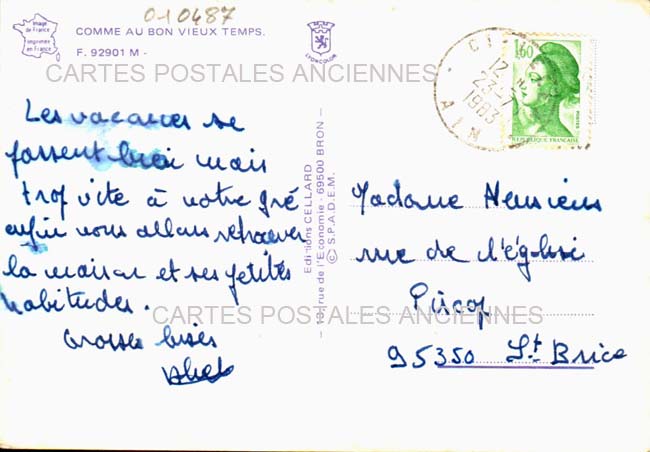 010487
Image
de France
Imprimée
en France
COMME AU BON VIEUX TEMPS.
F. 92901 M -
LYONCOLOR
CARTES POSTALES ANCIENNES
12
23-7
1983
AIN
1,60
POSTES
REPUBLIQUE FRANÇAISE
Les vacances se
passent bien mais
trop vite à notre gré
enfin nous allons retrouver
la maison et ses petites
habitudes.
Grosses bises
Editions CELLARD
- 13, rue de l'Economie - 69500 BRON -
© S.P.A.D.E.M.
Madame
rue de l'église
Piscop
95350 St Brice
CARTES POSTALES ANCIENNES